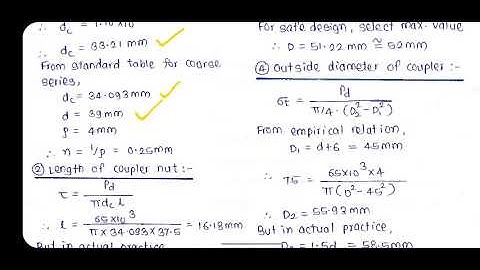 ∴ d_c = 1.10×10
∴ d_c = 33.21 mm
From standard table for coarse
series,
d_c = 34.093mm
d = 39mm
P = 4mm
∴ n = 1/p = 0.25mm
② Length of coupler nut:-
τ = Pd / πd_c l
∴ l = 65×10³ / π×34.093×37.5 = 16.18mm
But in actual practice
For safe design, select max. value
∴ D = 51.22mm ≅ 52mm
④ Outside diameter of coupler :-
σt = Pd / π/4 · (D₂²-D₁²)
From empirical relation,
D₁ = d+6 = 45mm
∴ 75 = 65×10³×4 / π(D²-45²)
∴ D₂ = 55.93mm
But in actual practice,
D₂ = 1.5d = 58.5mm